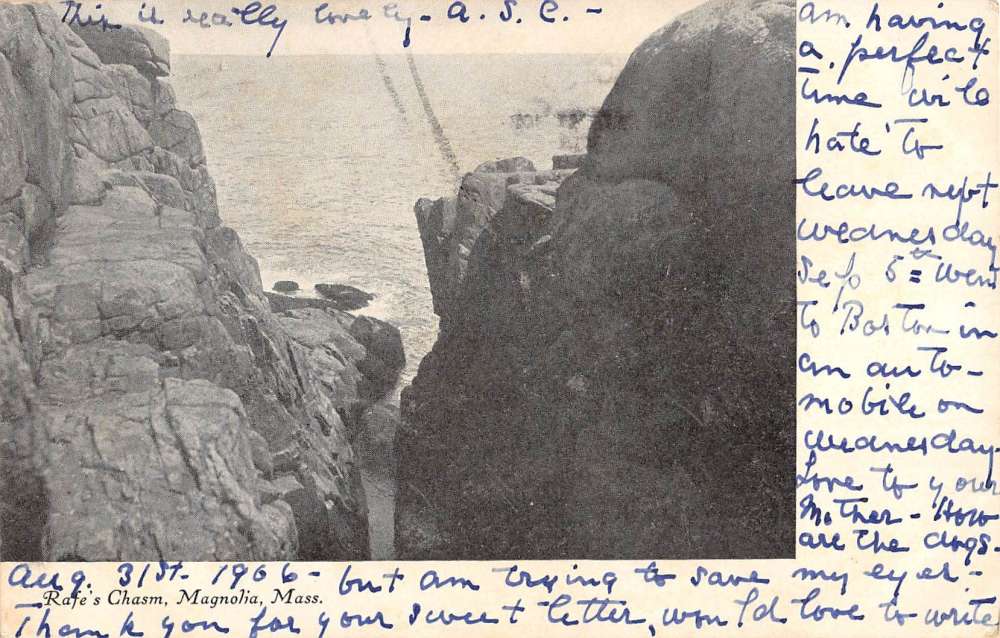 This is really lovely - A. S. C. -
am having
a perfect
time will
hate to
leave next
wednesday
Sep 5th went
to Boston in
an auto-
mobile on
wednesday.
Love to your
Mother - How
are the dogs.
Aug. 31st. 1906 - but am trying to save my eyes -
Rafe's Chasm, Magnolia, Mass.
Thank you for your sweet letter, would love to write